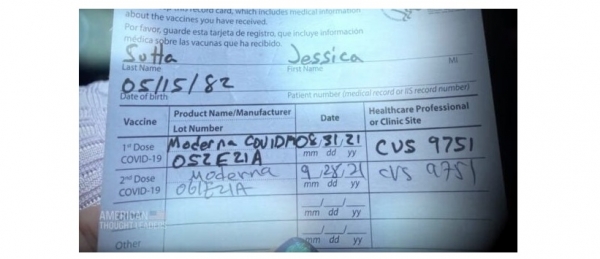 record card, which includes medical information
about the vaccines you have received.
Por favor, guarde esta tarjeta de registro, que incluye información
médica sobre las vacunas que ha recibido.
Sutta Jessica
Last Name First Name MI
05/15/82
Date of birth Patient number (medical record or IIS record number)
Vaccine Product Name/Manufacturer Date Healthcare Professional
Lot Number or Clinic Site
1st Dose Moderna COVID 08/31/21 CVS 9751
COVID-19 052E21A mm dd yy
2nd Dose Moderna 9/28/21 CVS 9751
COVID-19 061E21A mm dd yy
AMERICAN
THOUGHT LEADERS
mm dd yy
Other
mm dd yy